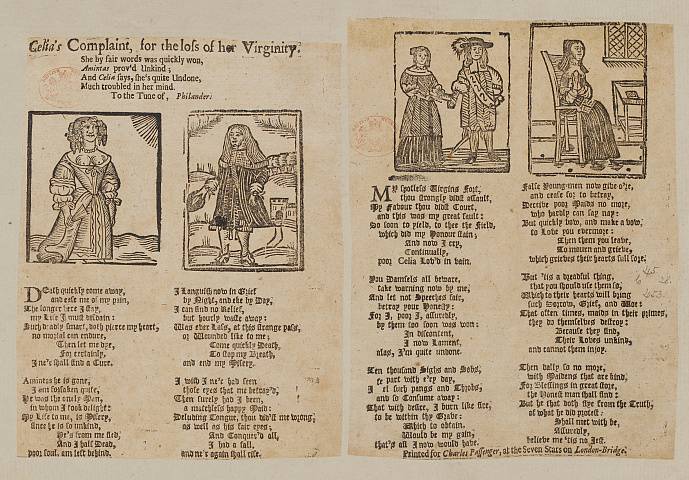 Celia's Complaint, for the loss of her Virginity.
She by fair words was quickly won,
Amintas prov'd Unkind;
And Celia says, she's quite Undone,
Much troubled in her mind.
To the Tune of, Philander:
DEath quickly come away,
and ease me of my pain,
The longer here I stay,
my Life I must disdain:
Such deadly smart, doth pierce my heart,
no mortal can endure,
Then let me dye,
For certainly,
I ne'r shall find a Cure.
Amintas he is gone,
I am forsaken quite,
He was the onely Man,
in whom I took delight:
My Life to me, is Misery,
since he is so unkind,
He's from me fled,
And I half Dead,
poor soul, am left behind.
I Languish now in Grief
by Night, and eke by Day,
I can find no Relief,
but hourly waste away:
Was ever Lass, at this strange pass,
or Wounded like to me;
Come quickly Death,
To stop my Breath,
and end my Misery.
I wish I ne'r had seen
those eyes that me betray'd,
Then surely had I been,
a matchless happy Maid:
Deluding Tongue, thou did'st me wrong,
as well as his fair eyes;
And Conquer'd all,
I had a fall,
and ne'r again shall rise.
MY spotless Virgins Fort,
thou strongly didst assault,
My Favour thou didst Court,
and this was my great fault:
So soon to yield, to thee the field,
which did my Honour stain;
And now I cry,
Continually,
poor Celia Lov'd in vain.
You Damsels all beware,
take warning now by me,
And let not Speeches fair,
betray your Honesty:
For I, poor I, assuredly,
by them too soon was won:
In discontent,
I now Lament,
alas, I'm quite undone.
Ten thousand Sighs and Sobs,
I part with e'ry day,
I feel such pangs and Throbs,
and so Consume away:
That with desire, I burn like fire,
to be within thy Grave:
Which to obtain,
Would be my gain,
that's all I now would have.
False Young-men now give o're,
and cease for to betray,
Deceive poor Maids no more,
who hardly can say nay:
But quickly bow, and make a vow,
to Love you evermore:
Then them you leave,
To mourn and grieve,
which grieves their hearts full sore.
But 'tis a dreadful thing,
that you should use them so,
Which to their hearts will bring
such Sorrow, Grief, and Woe:
That often times, maids in their primes,
they do themselves destroy:
Because they find,
Their Loves unkind,
and cannot them injoy.
Then dally so no more,
with Maidens that are kind,
For Blessings in great store,
the honest man shall find:
But he that doth flye from the Truth,
of what he did protest:
Shall met with be,
Assuredly,
believe me 'tis no Jest.
Printed for Charles Passenger, at the Seven Stars on London-Bridge.